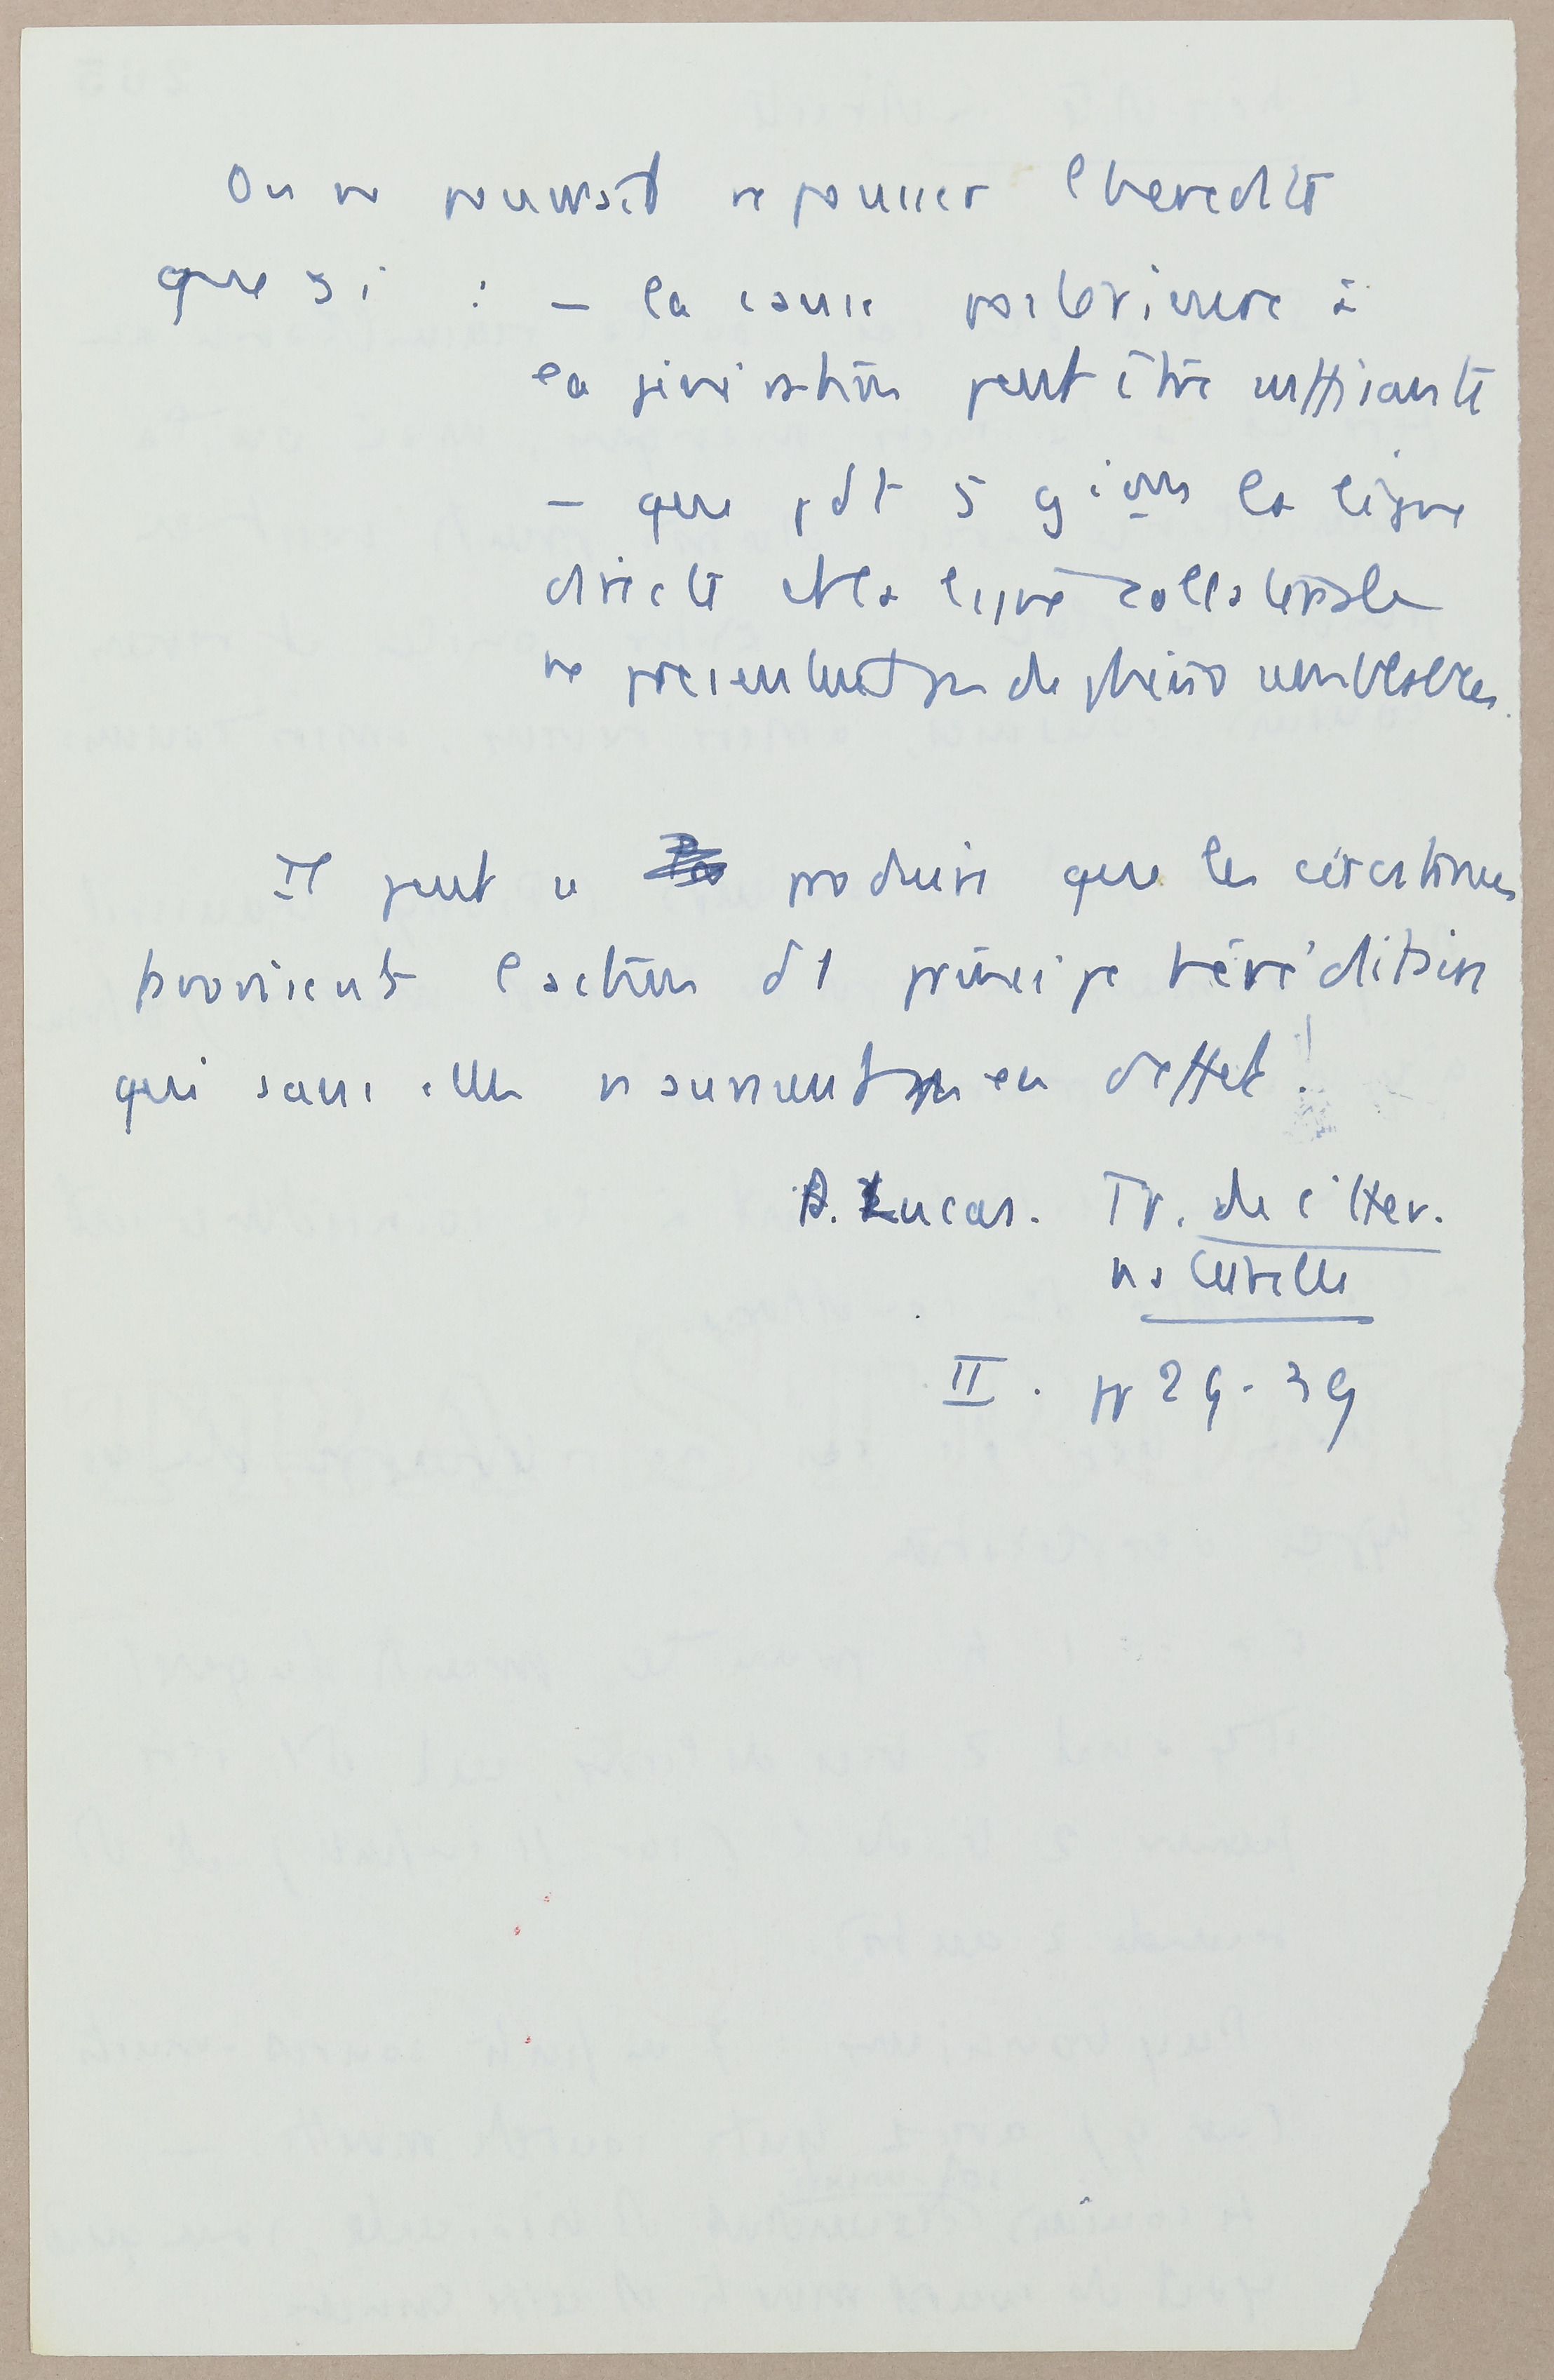 On ne pourrait repousser l'heredité
que si : – la cause posterieure à
la génération peut être suffisante
– que pdt 5 gions la ligne
directe et la ligne collatérale
ne présentent pas de phéno semblables.
Il peut se produire que les circstances
favorisent l'action d'1 principe héréditaire
qui sans elles n'auraient pas eu d'effet.
P. Lucas. Tr. de l'Her.
naturelle
II. pp 29-39